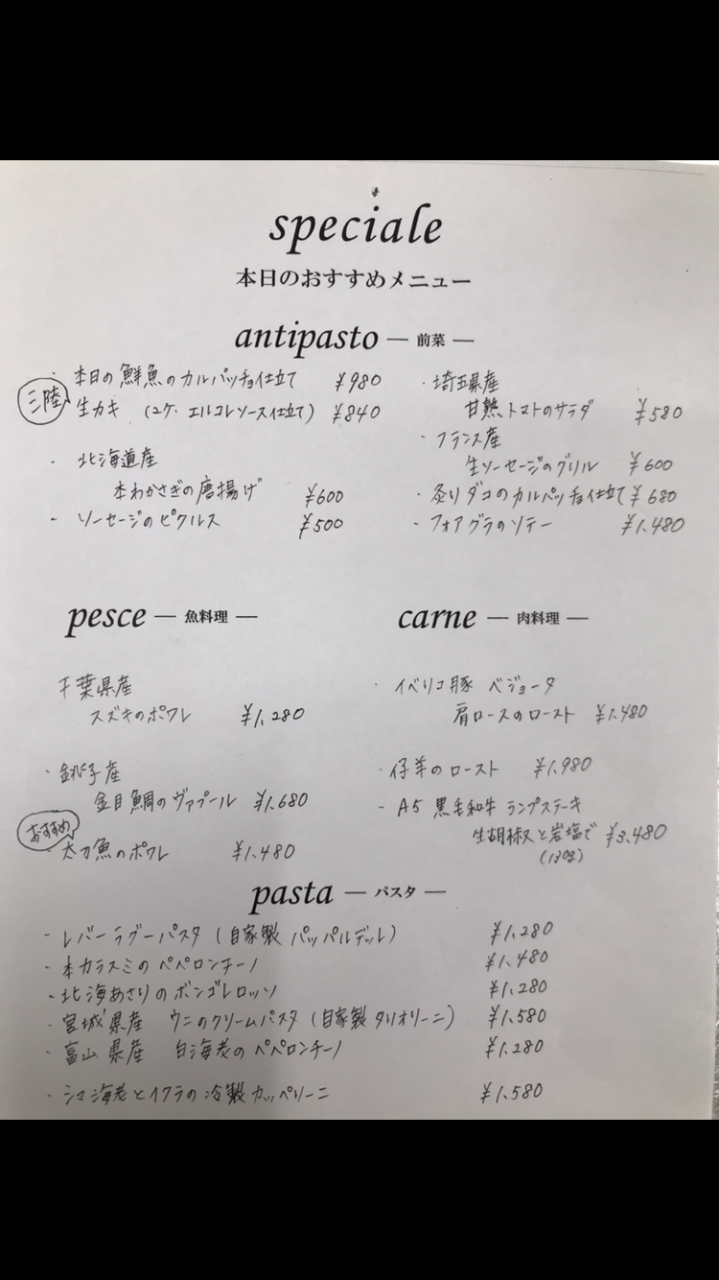 speciale
本日のおすすめメニュー
antipasto — 前菜 —
・本日の鮮魚のカルパッチョ仕立て ¥980
三陸 生カキ (2ケ、エルコレソース仕立て) ¥840
・北海道産
本わかさぎの唐揚げ ¥600
・ソーセージのピクルス ¥500
・埼玉県産
甘熟トマトのサラダ ¥580
・フランス産
生ソーセージのグリル ¥600
・炙りダコのカルパッチョ仕立て ¥680
・フォアグラのソテー ¥1.480
pesce — 魚料理 —
千葉県産
スズキのポワレ ¥1.280
・銚子産
金目鯛のヴァプール ¥1.680
おすすめ
・太刀魚のポワレ ¥1.480
carne — 肉料理 —
・イベリコ豚 ベジョータ
肩ロースのロースト ¥1.480
・仔羊のロースト ¥1.980
・A5 黒毛和牛 ランプステーキ
生胡椒と岩塩で ¥3.480
(130g)
pasta — パスタ —
・レバーラグーパスタ (自家製 パッパルデッレ) ¥1.280
・本カラスミのペペロンチーノ ¥1.480
・北海あさりのボンゴレロッソ ¥1.280
・宮城県産 ウニのクリームパスタ (自家製タリオリーニ) ¥1.580
・富山県産 白海老のペペロンチーノ ¥1.280
・シマ海老とイクラの冷製カッペリーニ ¥1.580